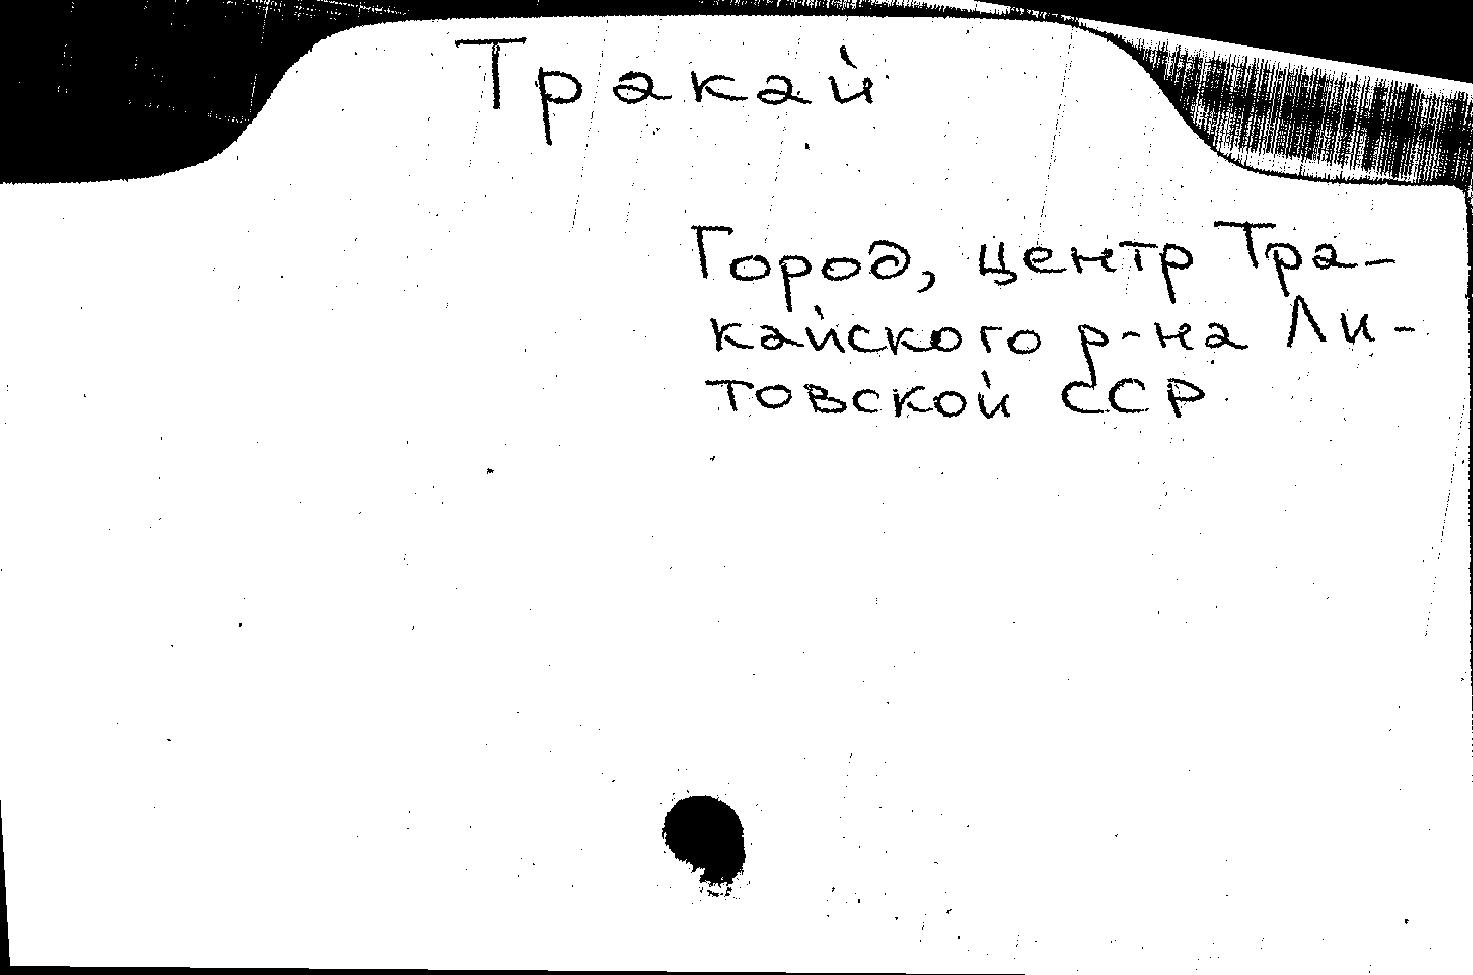 Тракай
Город, центр Тра-
кайского р-на Ли-
товской ССР